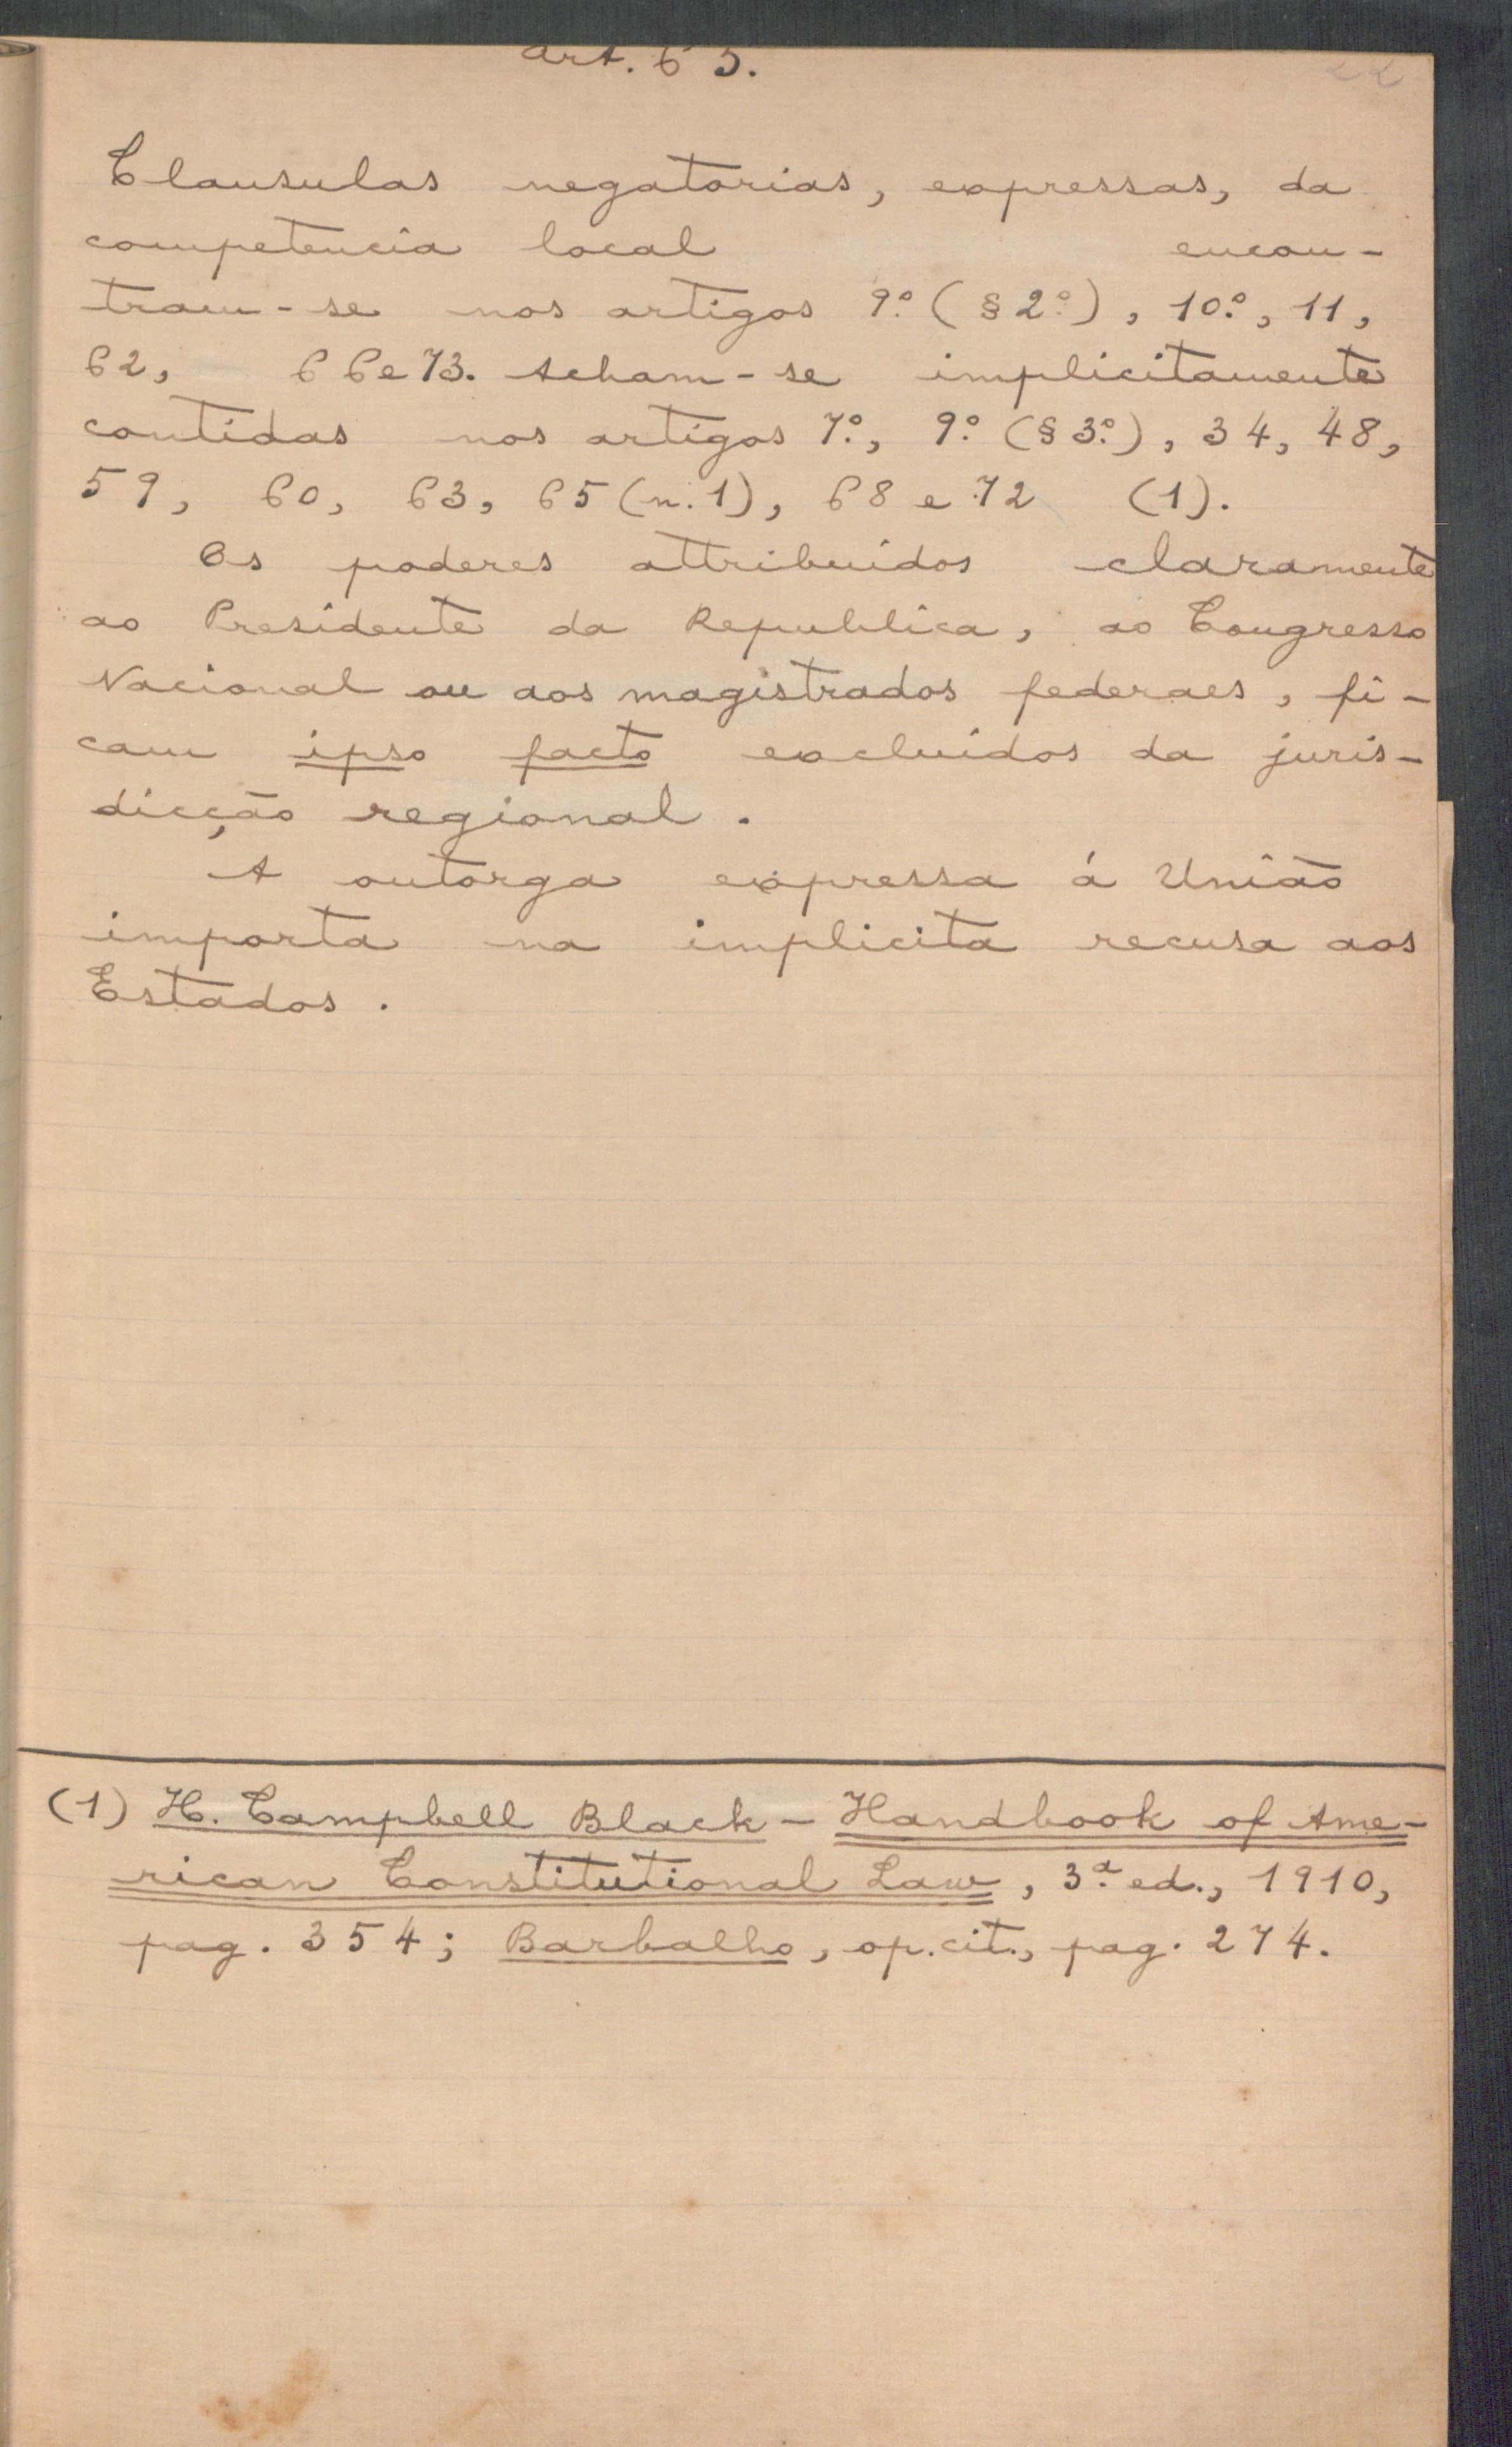 art. 65.
22
Clausulas negatorias, expressas, da
competencia local encon-
tram-se nos artigos 9º (§ 2º), 10º, 11,
62, 66 e 73. Acham-se implicitamente
contidas nos artigos 7º, 9º (§ 3º), 34, 48,
59, 60, 63, 65 (n. 1), 68 e 72 (1).
Os poderes attribuidos claramente
ao Presidente da Republica, ao Congresso
Nacional ou aos magistrados federaes, fi-
cam ipso facto excluidos da juris-
dicção regional.
A outorga expressa á União
importa na implicita recusa aos
Estados.
(1) H. Campbell Black - Handbook of Ame-
rican Constitutional Law, 3ª ed., 1910,
pag. 354; Barbalho, op. cit., pag. 274.